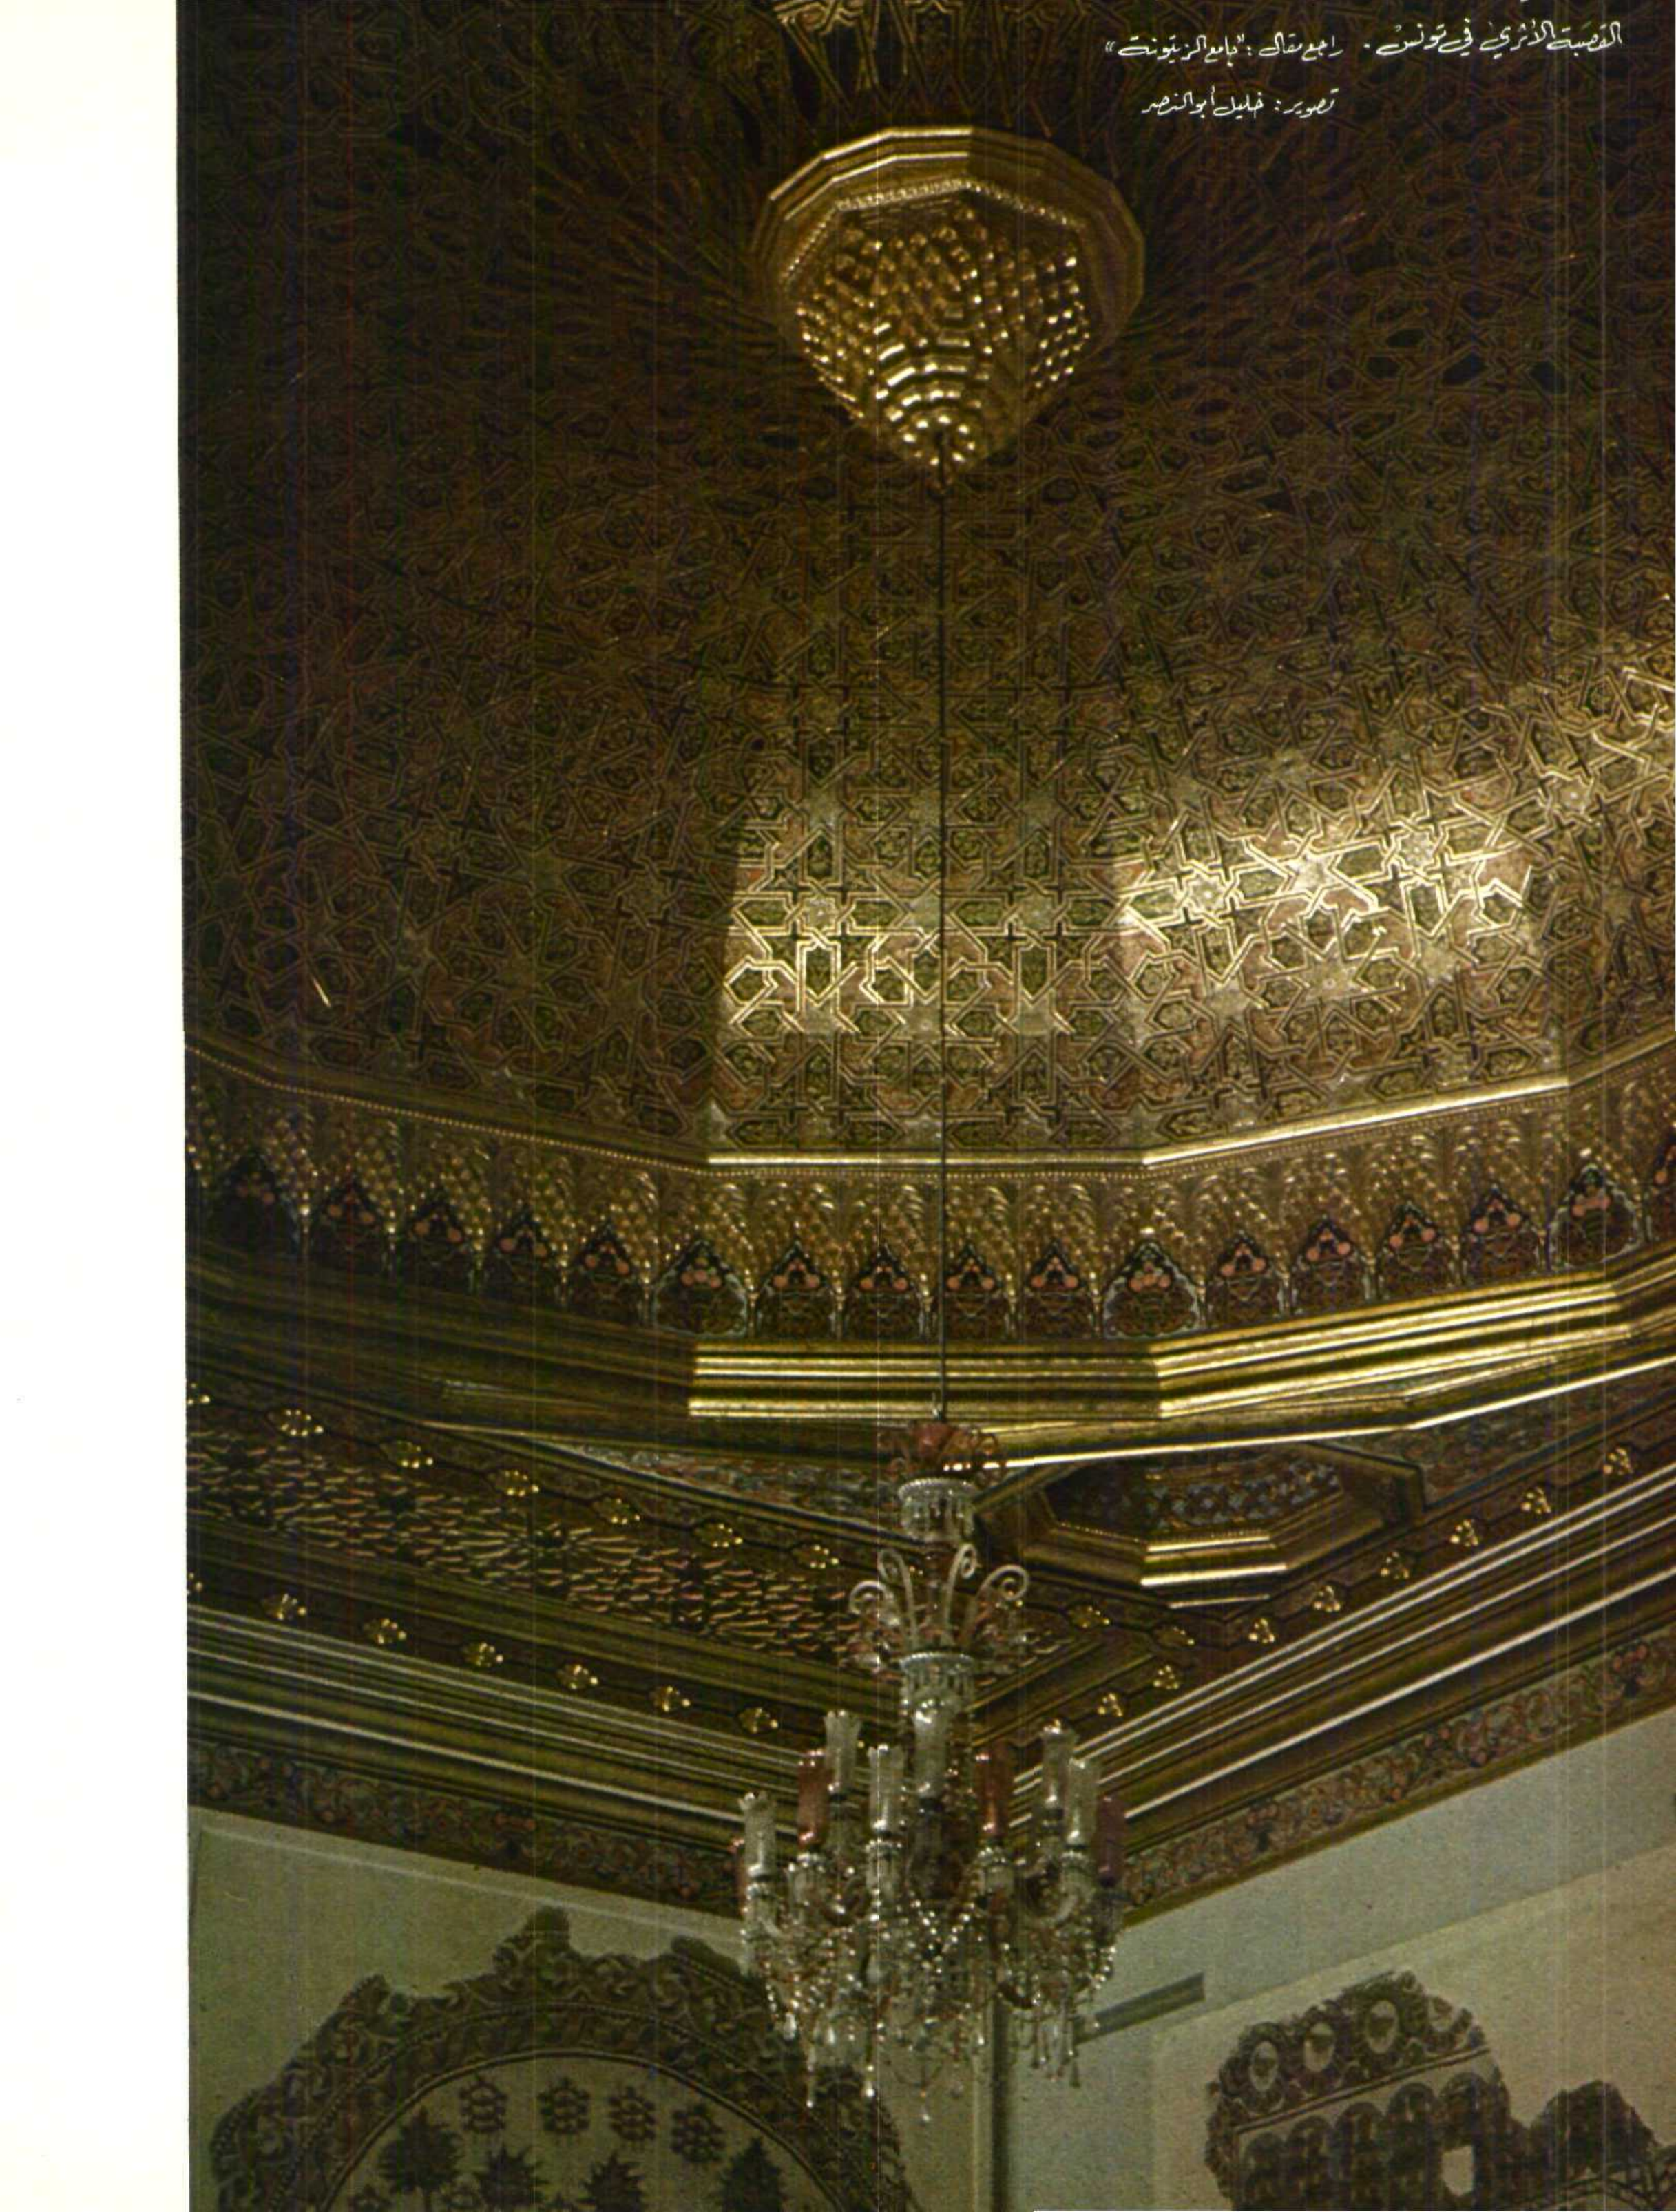 القصبة الأثري في تونس . راجع مقال : "جامع الزيتونة"
تصوير : خليل أبو النصر